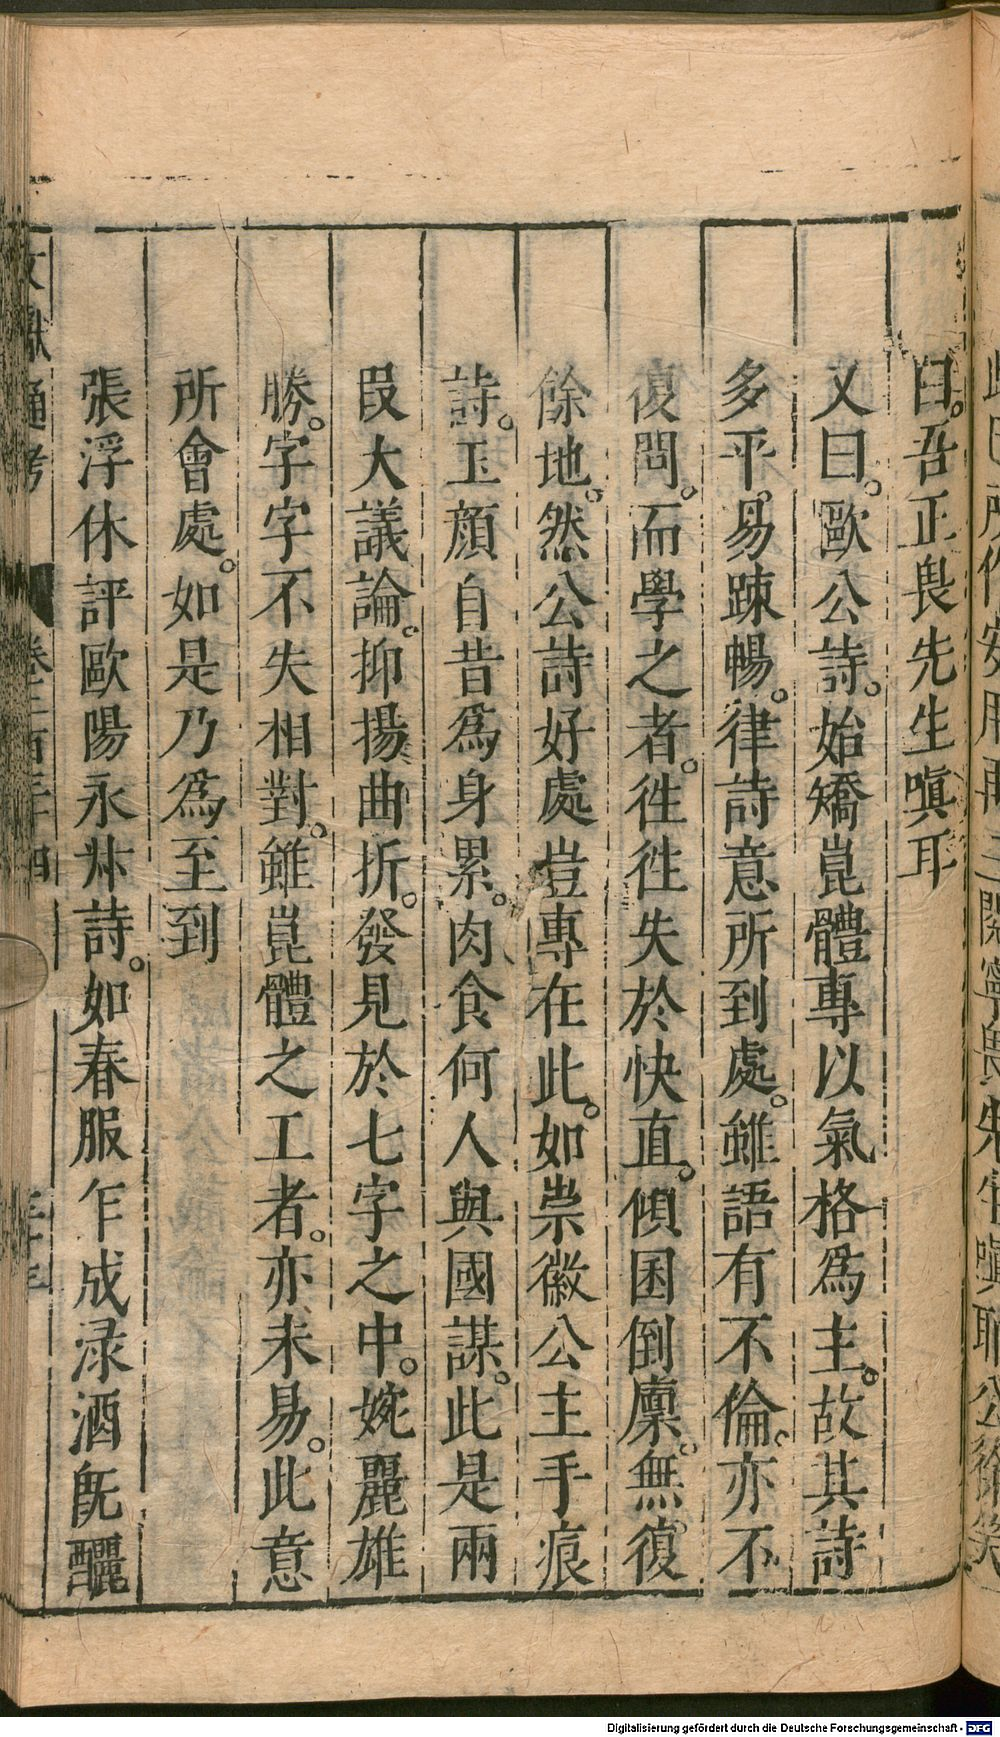 曰。吾正畏先生嗔耳
又曰。歐公詩。始矯崑體專以氣格爲主。故其詩
多平。易踈暢。律詩意所到處。雖語有不倫。亦不
復問。而學之者。徃徃失於快直。傾囷倒廪。無復
餘地。然公詩好處豈專在此。如崇徽公主手痕
詩。玉顔自昔爲身累。肉食何人與國謀。此是兩
叚大議論。抑揚曲折。發見於七字之中。婉麗雄
勝。字字不失相對。雖崑體之工者。亦未易。此意
所會處。如是乃爲至到
張浮休評歐陽永叔詩。如春服乍成渌酒旣釃
文獻通考
Digitalisierung gefördert durch die Deutsche Forschungsgemeinschaft - DFG